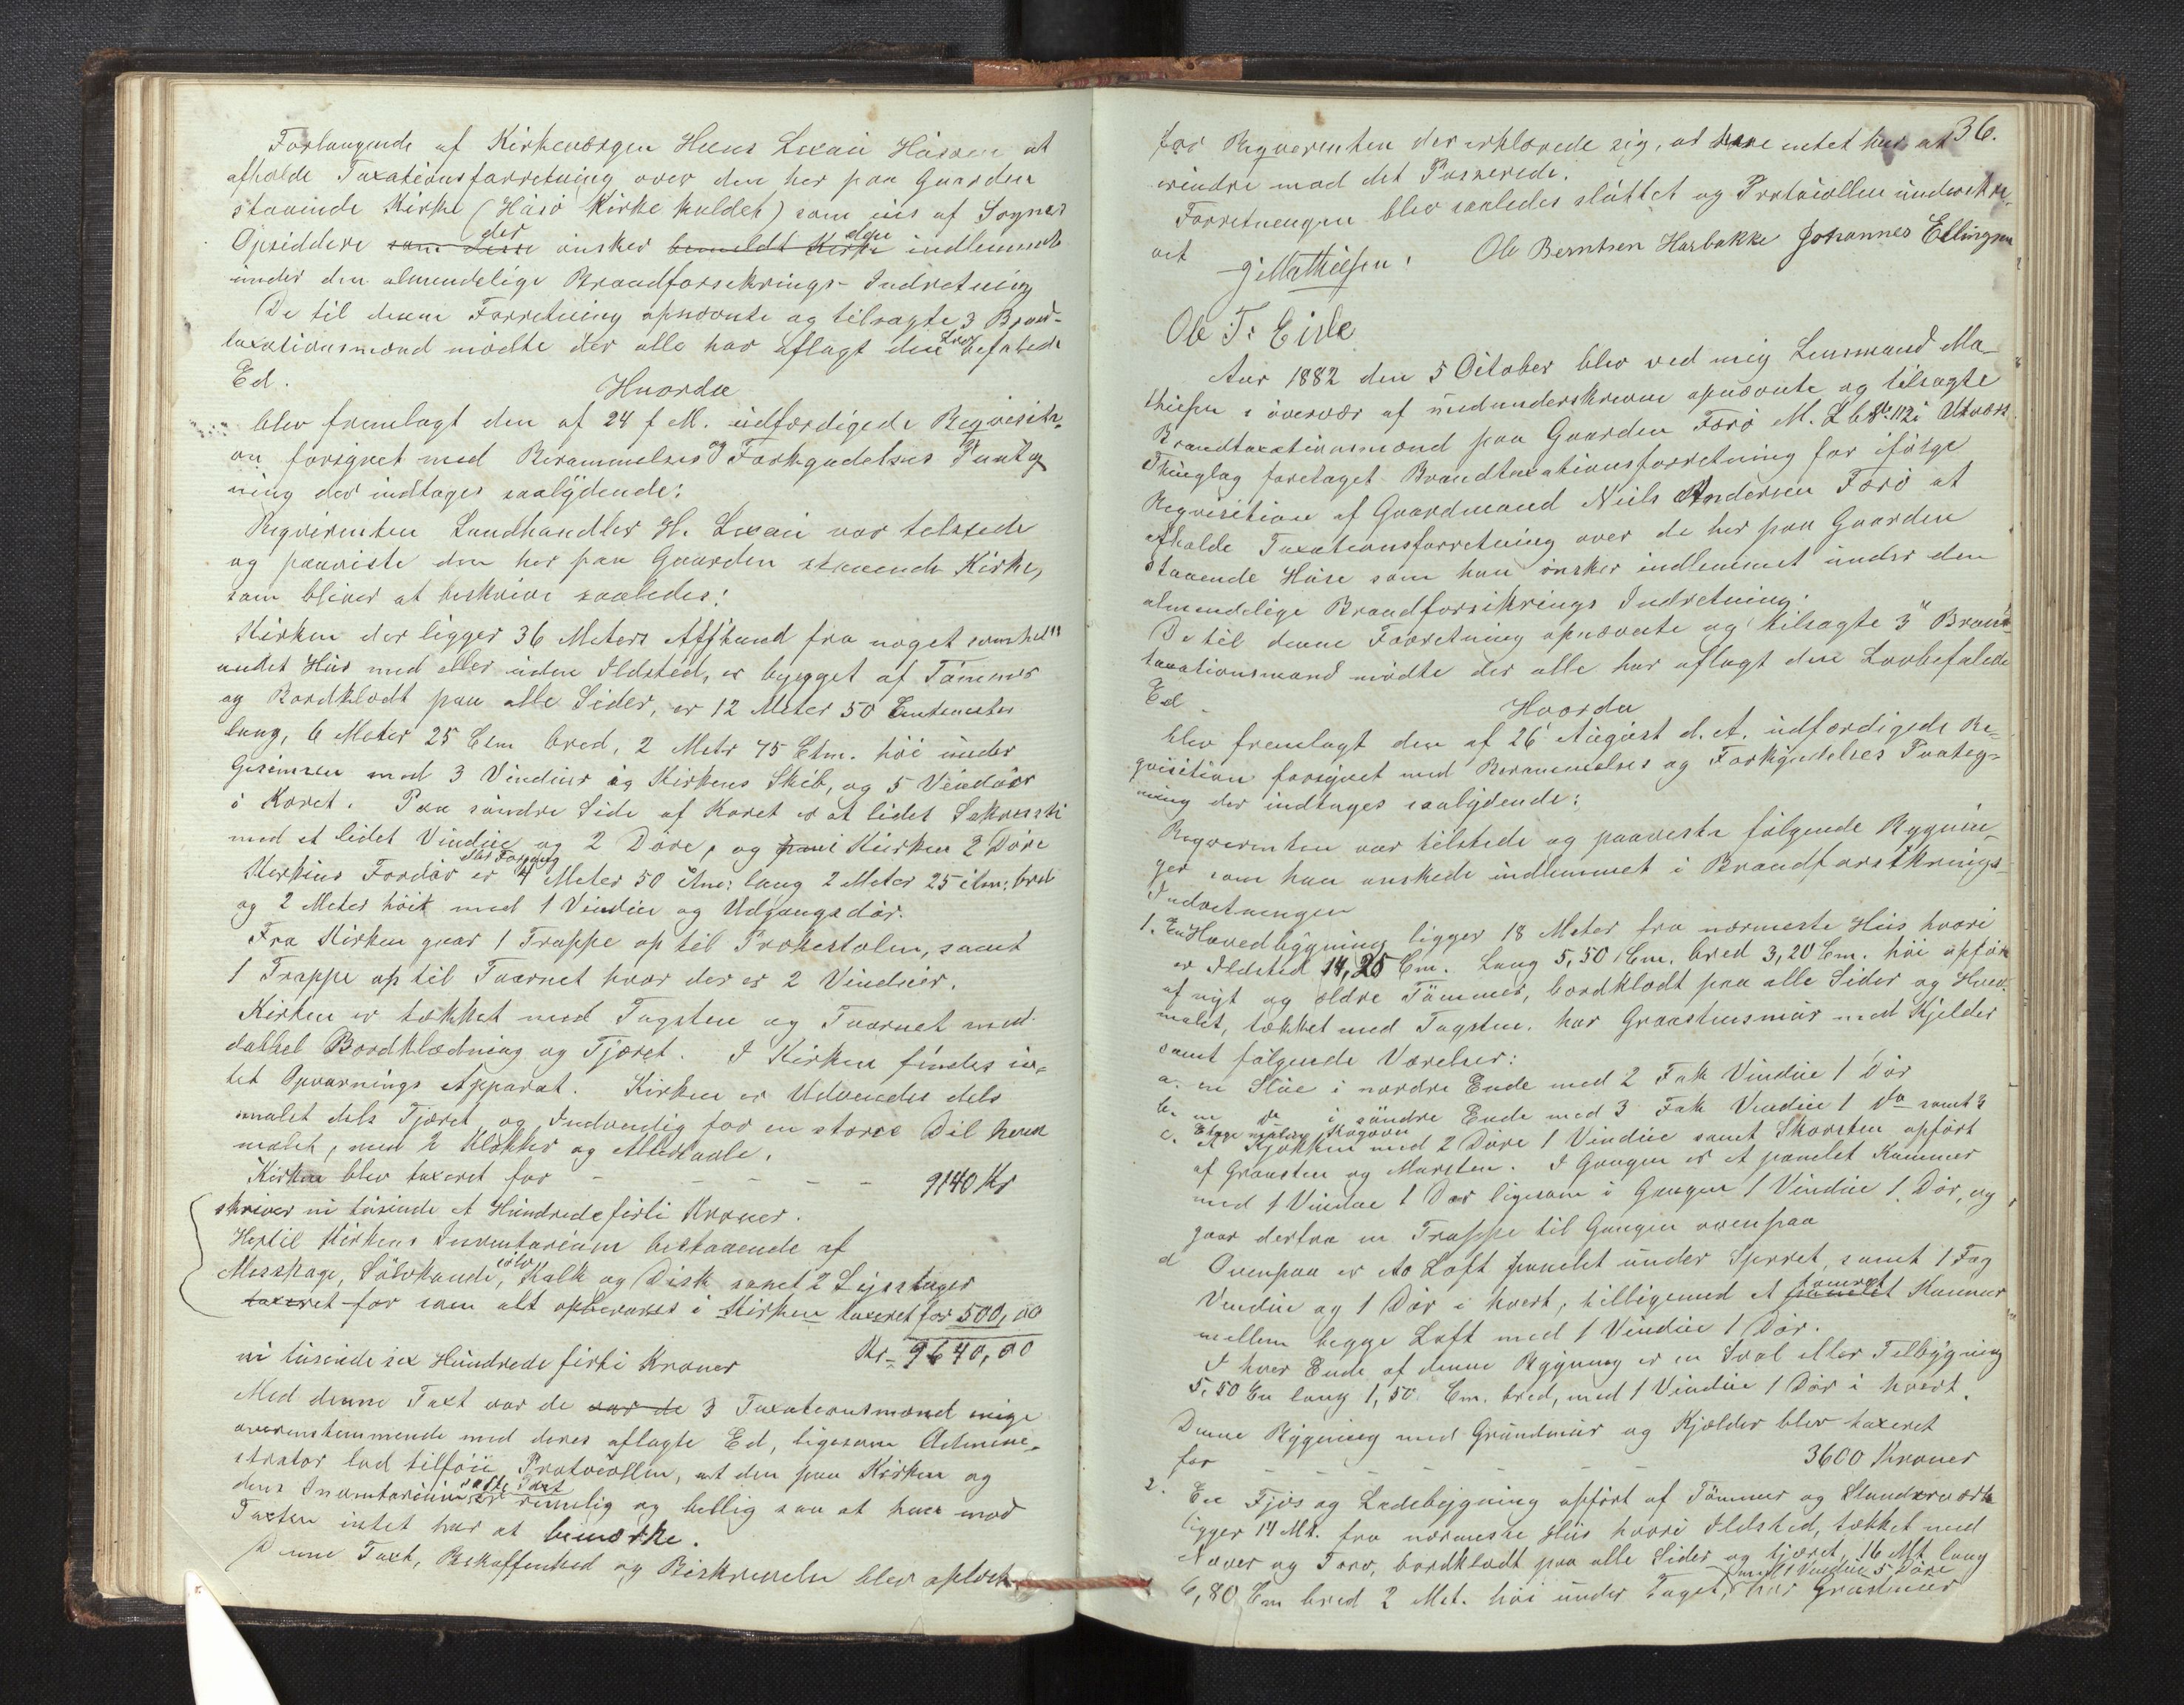 Forlangende af Kirkeværgen Hans Lexau Husøen at
afholde Taxationsforretning over den her paa Gaarden
staaende Kirke (Husø Kirke kaldet) som eies af Sognets
Opsiddere som disse der ønsker bemeldt Kirke den indlemmet
under den almendelige Brandforsikrings-Indretning
De til denne Forretning opnævnte og tilsagte 3 Brand-
taxationsmænd mødte der alle har aflagt den Lovbefalede
Ed.
Hvorda
blev fremlagt den af 24 f M. udfærdigede Reqvisiti-
on forsynet med Berammelses og Forkyndelses Paateg
ning der indtages saalydende:
Reqvirenten Landhandler H. Lexau var tilstede
og paaviste den her paa Gaarden staaende Kirke,
som bliver at beskrive saaledes:
Kirken der ligger 36 Meters Afstand fra noget somhelst
andet Hus med eller uden Ildsted, er bygget af Tømmer
og Bordklædt paa alle Sider, er 12 Meter 50 Centimeter
lang, 6 Meter 25 Ctm bred, 2 Metr 75 Ctm. høi under
Gesimsen med 3 Vinduer i Kirkens Skib, og 5 Vinduer
i Koret. Paa søndre Side af Koret er et lidet Sakresti
med et lidet Vindue og 2 Døre, og i Kirken 2 Døre
Kirkens Fordør eller Forgang er 4 Meter 50 ctm: lang 2 Meter 25 ctm: bred
og 2 Meter høit med 1 Vindue og Udgangsdør.
Fra Kirken gaar 1 Trappe op til Prækestolen, samt
1 Trappe op til Taarnet hvor der er 2 Vinduer.
Kirken er tækket med Tagsten og Taarnet med
dobbel Bordklædning og Tjæret. I Kirken findes in-
tet Opvarmings Apparat. Kirken er Udvendig dels
malet dels Tjæret og Indvendig for en større Del hvid
malet, med 2 Klokker og Altertavle.
Kirken blev taxeret for - - - - - 9140 Kr
skriver ni tusinde et Hundrede førti Kroner.
Hertil Kirkens Inventarium bestaaende af
Messhage, Sølvkande, sølv Kalk og Disk samt 2 Lysestager
taxeret for som alt opbevares i Kirken taxeret for 500,00
ni tusinde sex Hundrede førti Kroner Kr- 9640,00
Med denne Taxt var de var de 3 Taxationsmænd enige
overenstemmende med deres aflagte Ed, ligesom Admini-
strator lod tilføie Protocollen, at den paa Kirken og
dens Inventarium satte Taxt er rimelig og billig saa at han mod
Taxten intet har at bemærke.
Denne Taxt, Beskaffenhed og Beskrivelse blev oplæst
36.
for Reqvirenten der erklærede sig, at have intet her at
erindre mod det Passerede.
Forretningen blev saaledes sluttet og Protocollen underskre-
vet
J Mathiesen. Ole Berntsen Harbakke Johannes Ellingsen
Ole T. Eide
Aar 1882 den 5 October blev ved mig Lensmand Ma-
thiesen i overvær af medunderskrevne opnævnte og tilsagte
Brandtaxationsmænd paa Gaarden Forø M. L No 112 i Utvær
Thinglag foretaget Brandtaxationsforretning for ifølge
Reqvisition af Gaardmand Niels Andersen Forø at
afholde Taxationsforretning over de her paa Gaarden
staaende Huse som han ønsker indlemmet under den
almendelige Brandforsikrings Indretning.
De til denne Forretning opnævnte og tilsagte 3 Brand-
taxationsmænd mødte der alle har aflagt den Lovbefalede
Ed.
Hvorda
blev fremlagt den af 26 August d. A. udfærdigede Re-
qvisition forsynet med Berammelses og Forkyndelses Paateg-
ning der indtages saalydende:
Reqvirenten var tilstede og paaviste følgende Bygnin-
ger som han ønskede indlemmet i Brandforsikrings-
Indretningen
1. En Hovedbygning ligger 18 Meter fra nærmeste Hus hvori
er Ildsted 14,25 Cm. Lang 5,50 Cm. bred 3,20 Cm. høi opført
af nyt og ældre Tømmer, bordklædt paa alle Sider og Hvid-
malet, tækket med Tagsten. har Graastensmur med Kjelder
samt følgende Værelser:
a. en Stue i nordre Ende med 2 Fak Vindue 1 Dør
b. en do i søndre Ende med 3 Fak Vindue 1 do samt i
Begge Kogovn
c. et Kjøkken med 2 Døre 1 Vindue samt Skorsten opført
af Graasten og Mursten. I Gangen er et panelet Kammer
med 1 Vindue 1 Dør ligesom i Gangen 1 Vindue 1 Dør, og
gaar derfra en Trappe til Gangen ovenpaa
d Ovenpaa er to Loft panelet under Sperret, samt 1 Fag
Vindue og 1 Dør i hvert, tilligemed et panelet tømret Kammer
mellem begge Loft med 1 Vindue 1 Dør.
I hver Ende af denne Bygning er en Sval eller Tilbygning
5,50 Cm lang 1,50 Cm. bred, med 1 Vindue 1 Dør i hvert.
Denne Bygning med Grundmur og Kjælder blev taxeret
for - - - - - 3600 Kroner
2. En Fjøs og Ladebygning opført af Tømmer og Standerværk
ligger 14 Mt. fra nærmeste Hus hvori Ildsted, tækket med
Næver og Torv, bordklædt paa alle Sider og tjæret, 16 Mt lang
6,80 Cm bred 2 Met. høi under Taget, med 1 Vindue 5 Døre har Graastensmur